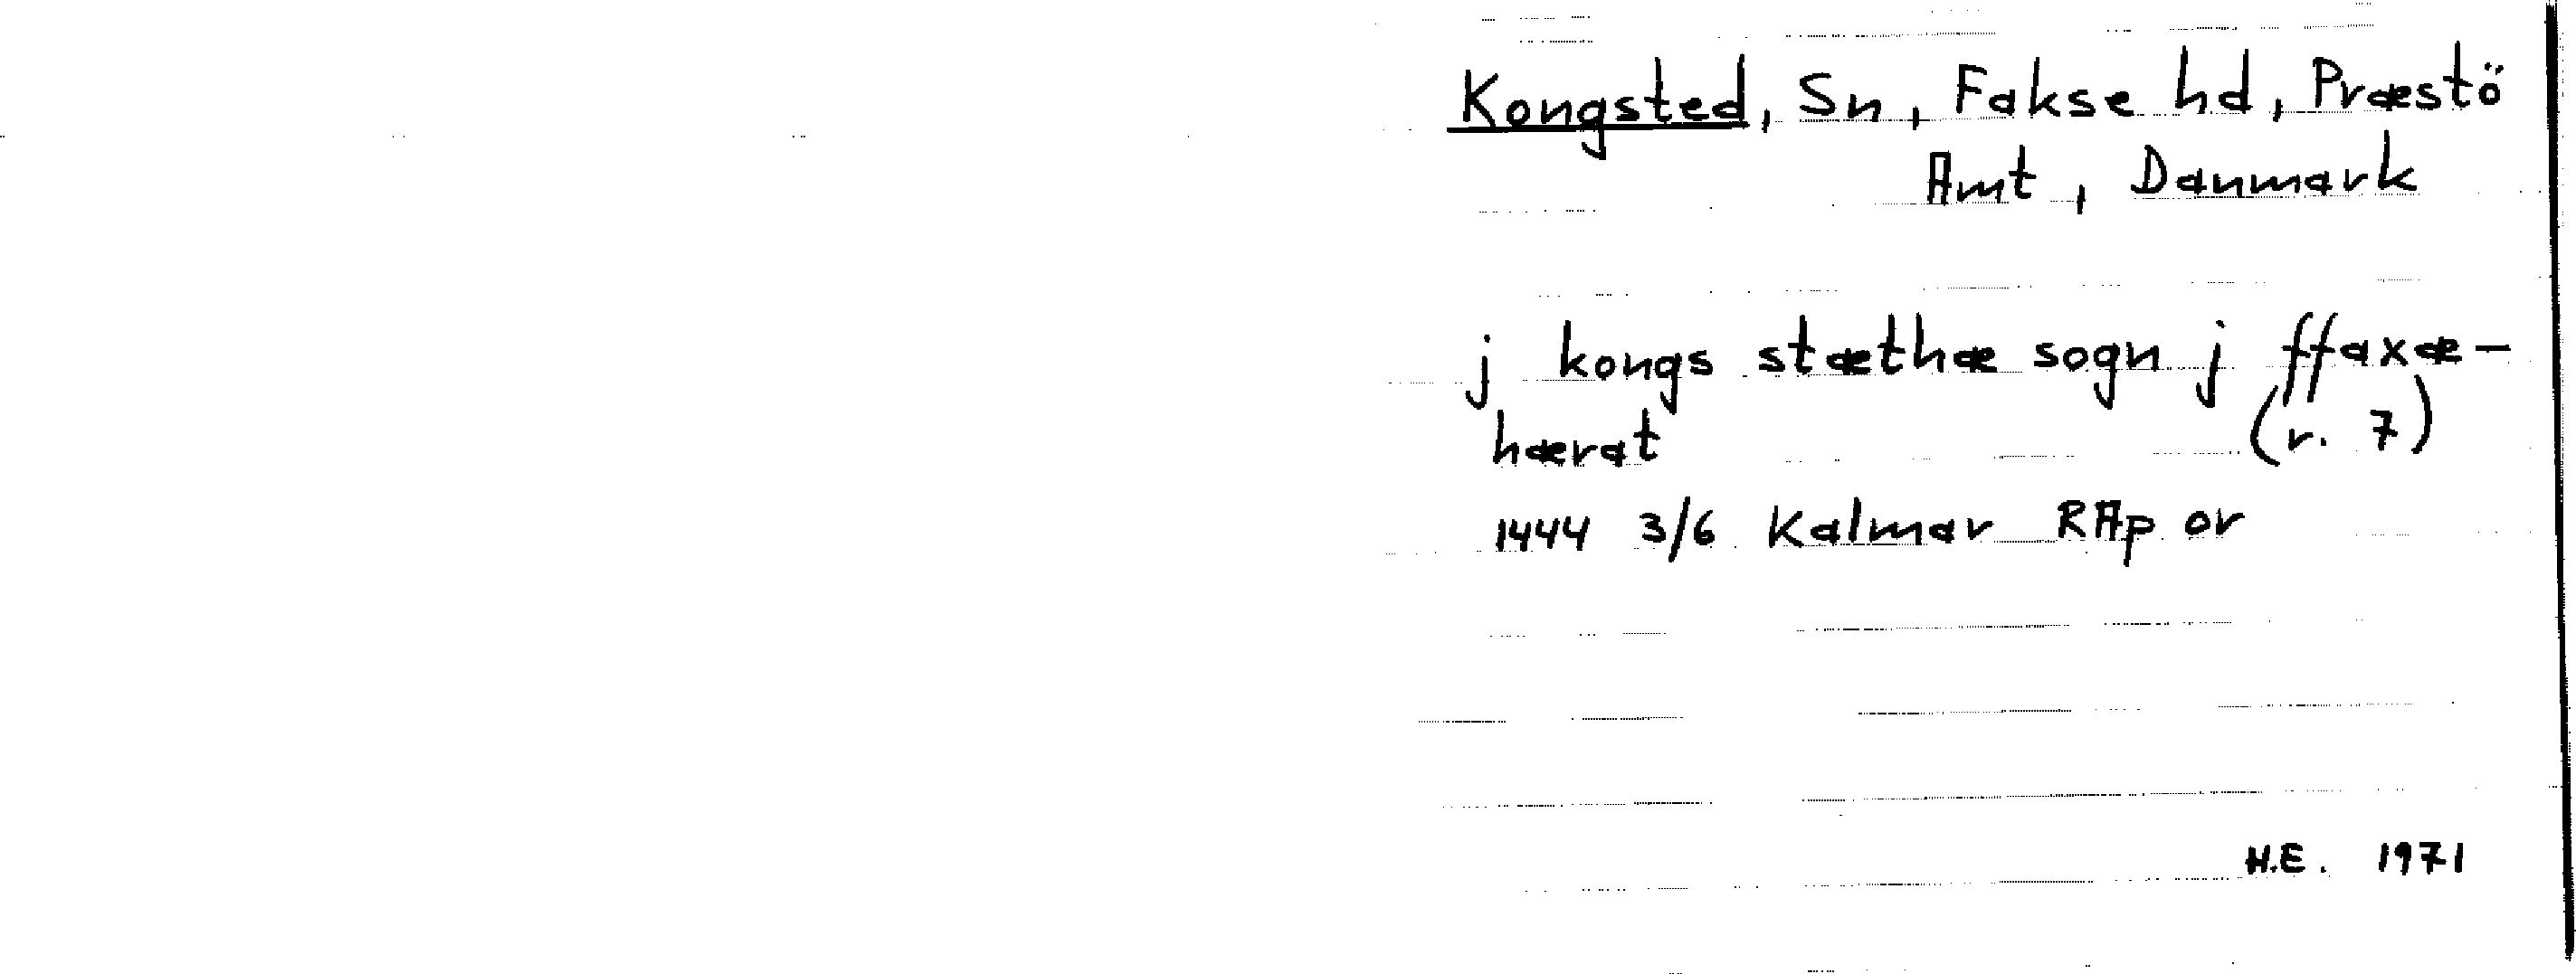 Kongsted, Sn, Fakse hd, Præstö
Amt, Danmark
j kongs stæthæ sogn j ffaxæ-
hærat (r. 7)
1444 3/6 Kalmar RAp or
H.E. 1971